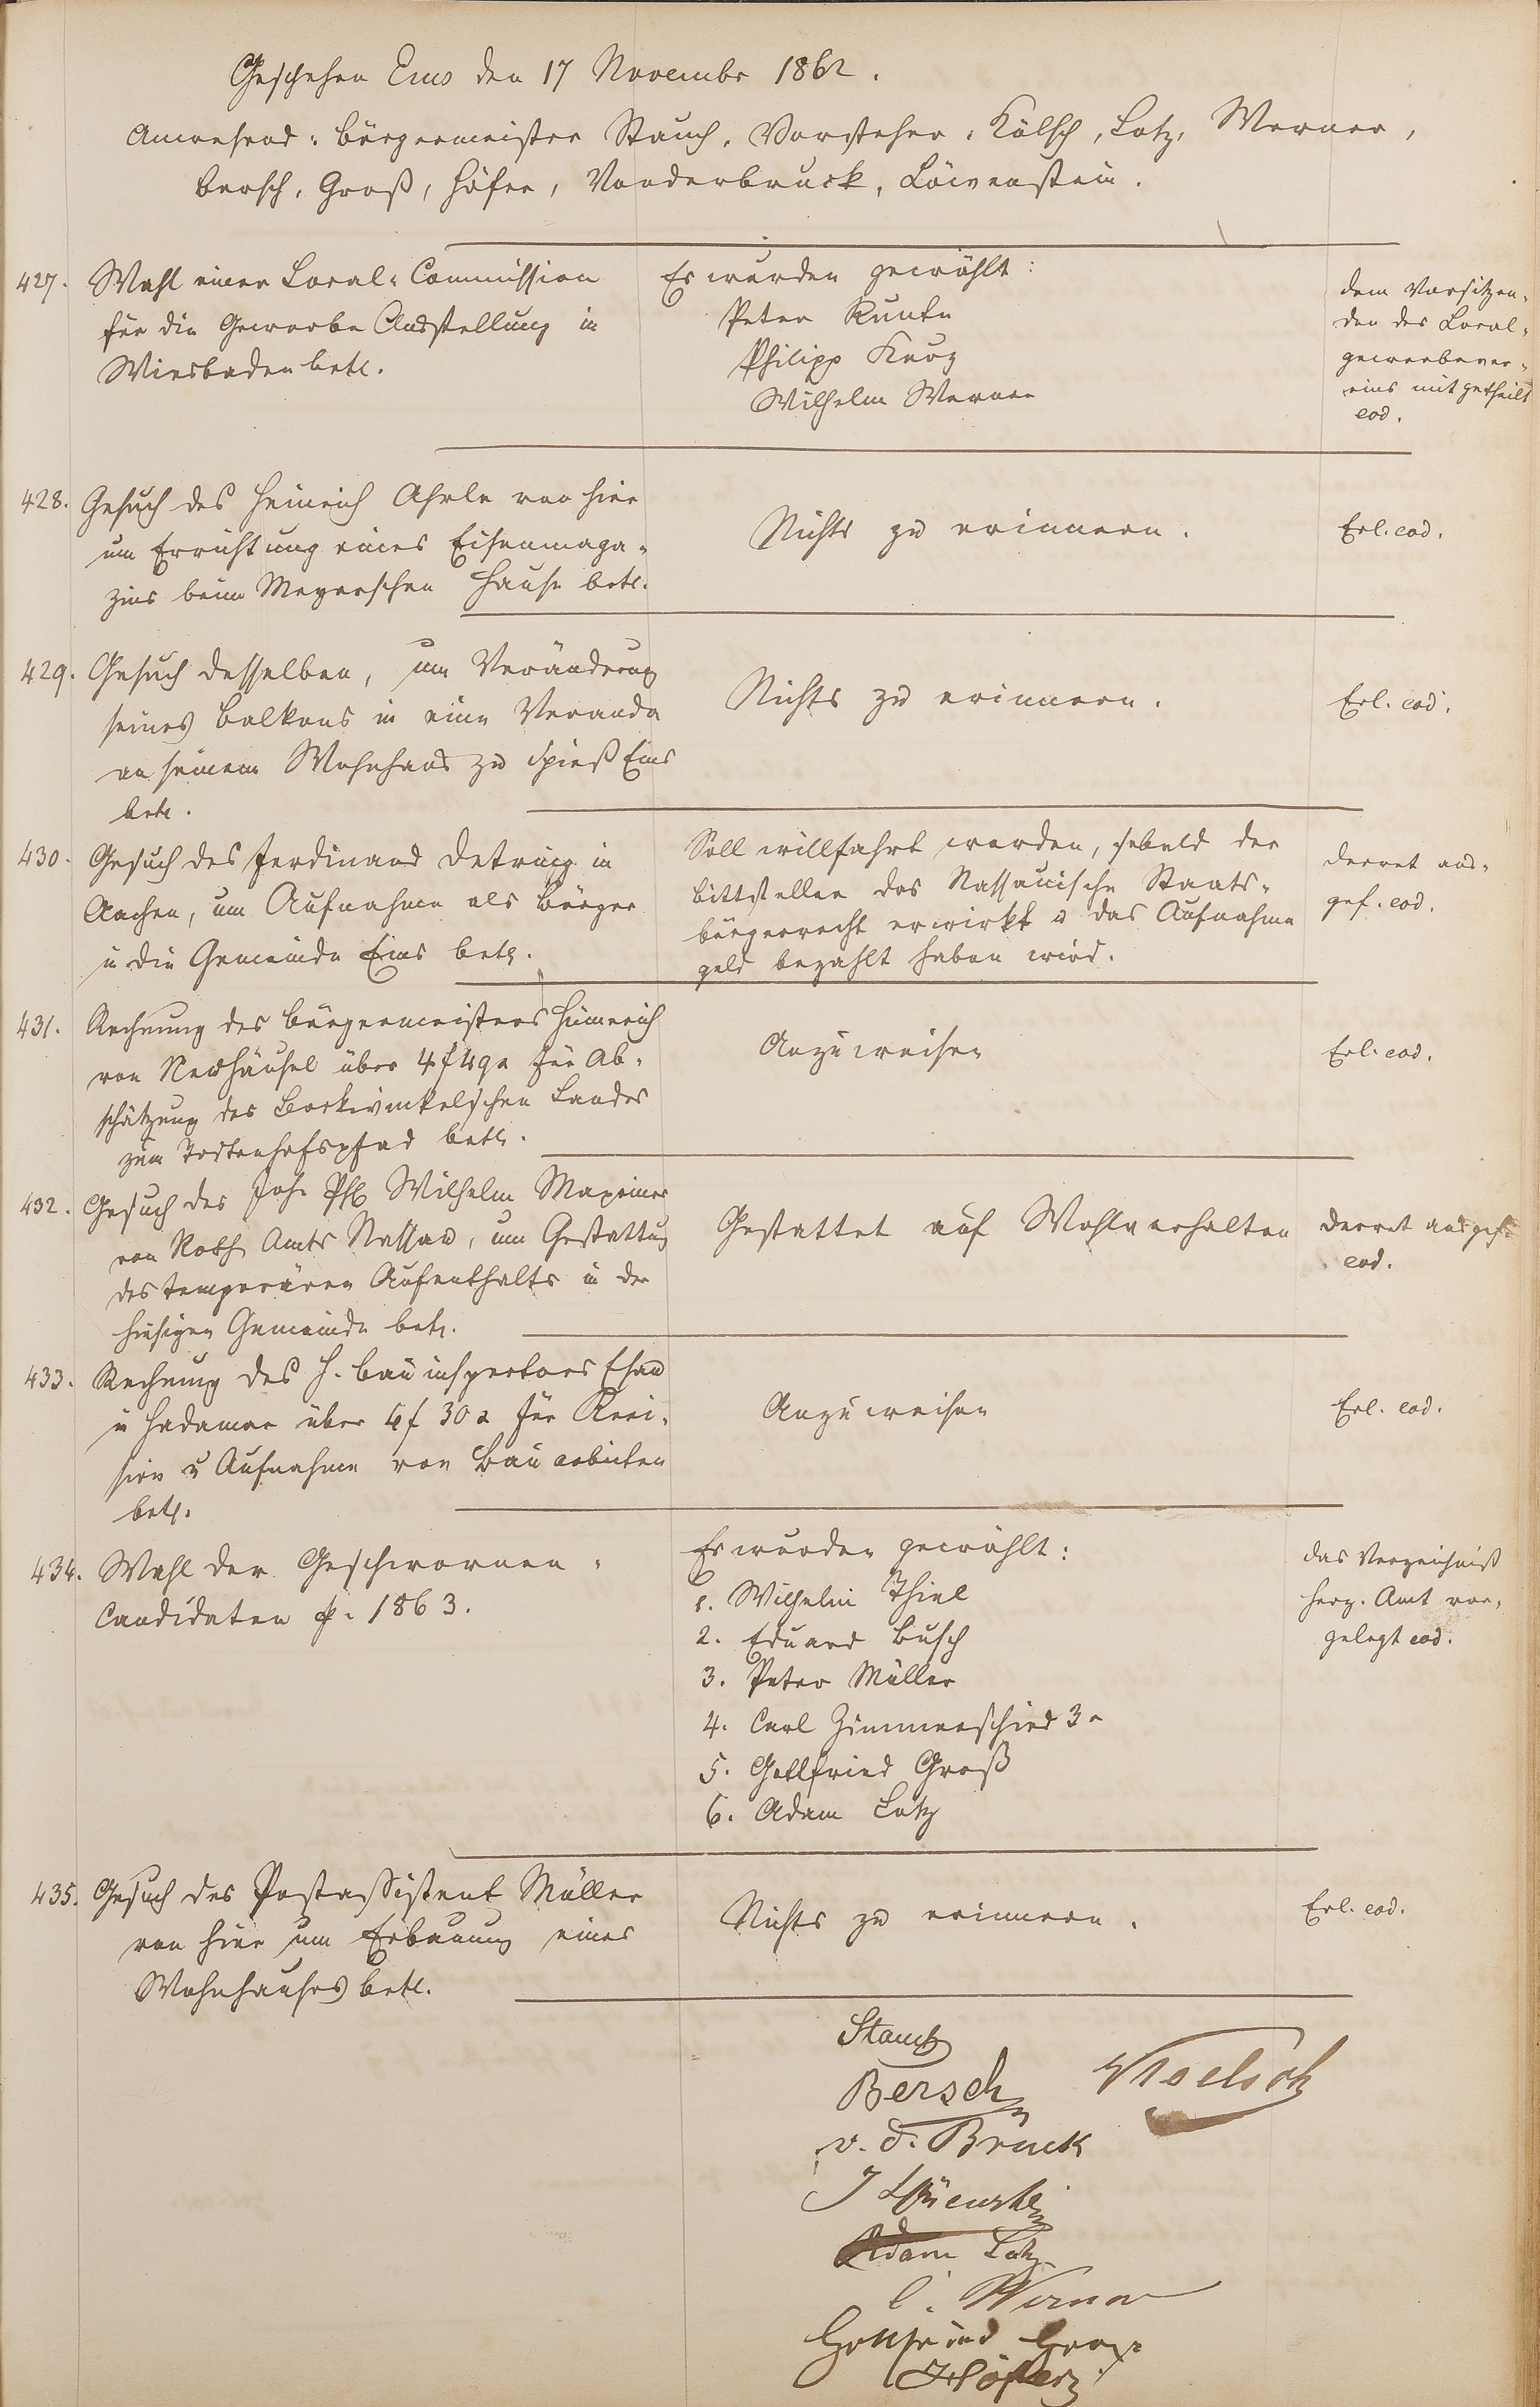 Geschehen Ems den 17 Novembr 1862.
Anwesend: Bürgermeister Stauch, Vorsteher: Kölsch, Lotz, Werner,
Bersch, Groß, Höfer, Vonderbruck, Löwenstein.
427. Wahl einer Local-Commission
für die Gewerbe Ausstellung in
Wiesbaden betr.
Es wurden gewählt:
Peter Runte
Philipp Kurz
Wilhelm Werner
dem Vorsitzen-
den des Local-
gewerbever-
eins mitgetheilt
eod.
428. Gesuch des Heinrich Ahrle von hier
um Errichtung eines Eisenmaga-
zins beim Meyerschen Hause betr.
Nichts zu erinnern.
Erl. eod.
429. Gesuch desselben, um Veränderung
seines Balkons in eine Veranda
an seinem Wohnhaus zu Spieß Ems
betr.
Nichts zu erinnern.
Erl. eod.
430. Gesuch des Ferdinand in
Aachen, um Aufnahme als Bürger
in die Gemeinde Ems betr.
Soll willfahrt werden, sobald der
Bittsteller das Nassauische Staats-
bürgerrecht erwirkt u das Aufnahme
geld bezahlt haben wird.
Decret aus-
gef. eod.
431. Rechnung des Bürgermeisters Hümerich
von Neuhäusel über 4 f 49 x für Ab-
schätzung des Bockwinkelschen Landes
zum Todtenhofspfad betr.
Anzuweisen
Erl. eod.
432. Gesuch des Joh. Phil Wilhelm Maxeiner
von Roth Amts Nassau, um Gestattung
des temporären Aufenthalts in der
hiesigen Gemeinde betr.
Gestattet auf Wohlverhalten
Decret ausgef.
eod.
433. Rechnung des H. Bauinspectors Esau
in Hadamar über 4 f 30 x für Revi-
sion u Aufnahme von Bauarbeiten
betr.
Anzuweisen
Erl. eod.
434. Wahl der Geschwornen-
Candidaten p. 1863.
Es wurden gewählt:
1. Wilhelm Thiel
2. Eduard Busch
3. Peter Müller
4. Carl Zimmerschied 3r
5. Gottfried Groß
6. Adam Lotz
das Verzeichniß
Herz. Amt vor-
gelegt eod.
435. Gesuch des Postassistent Müller
von hier um Erbauung eines
Wohnhauses betr.
Nichts zu erinnern.
Erl. eod.
Stauch
Bersch Koelsch
v. d. Bruck
J Löwenstein
Adam Lotz
C. Werner
Gottfried Groß
Höfer